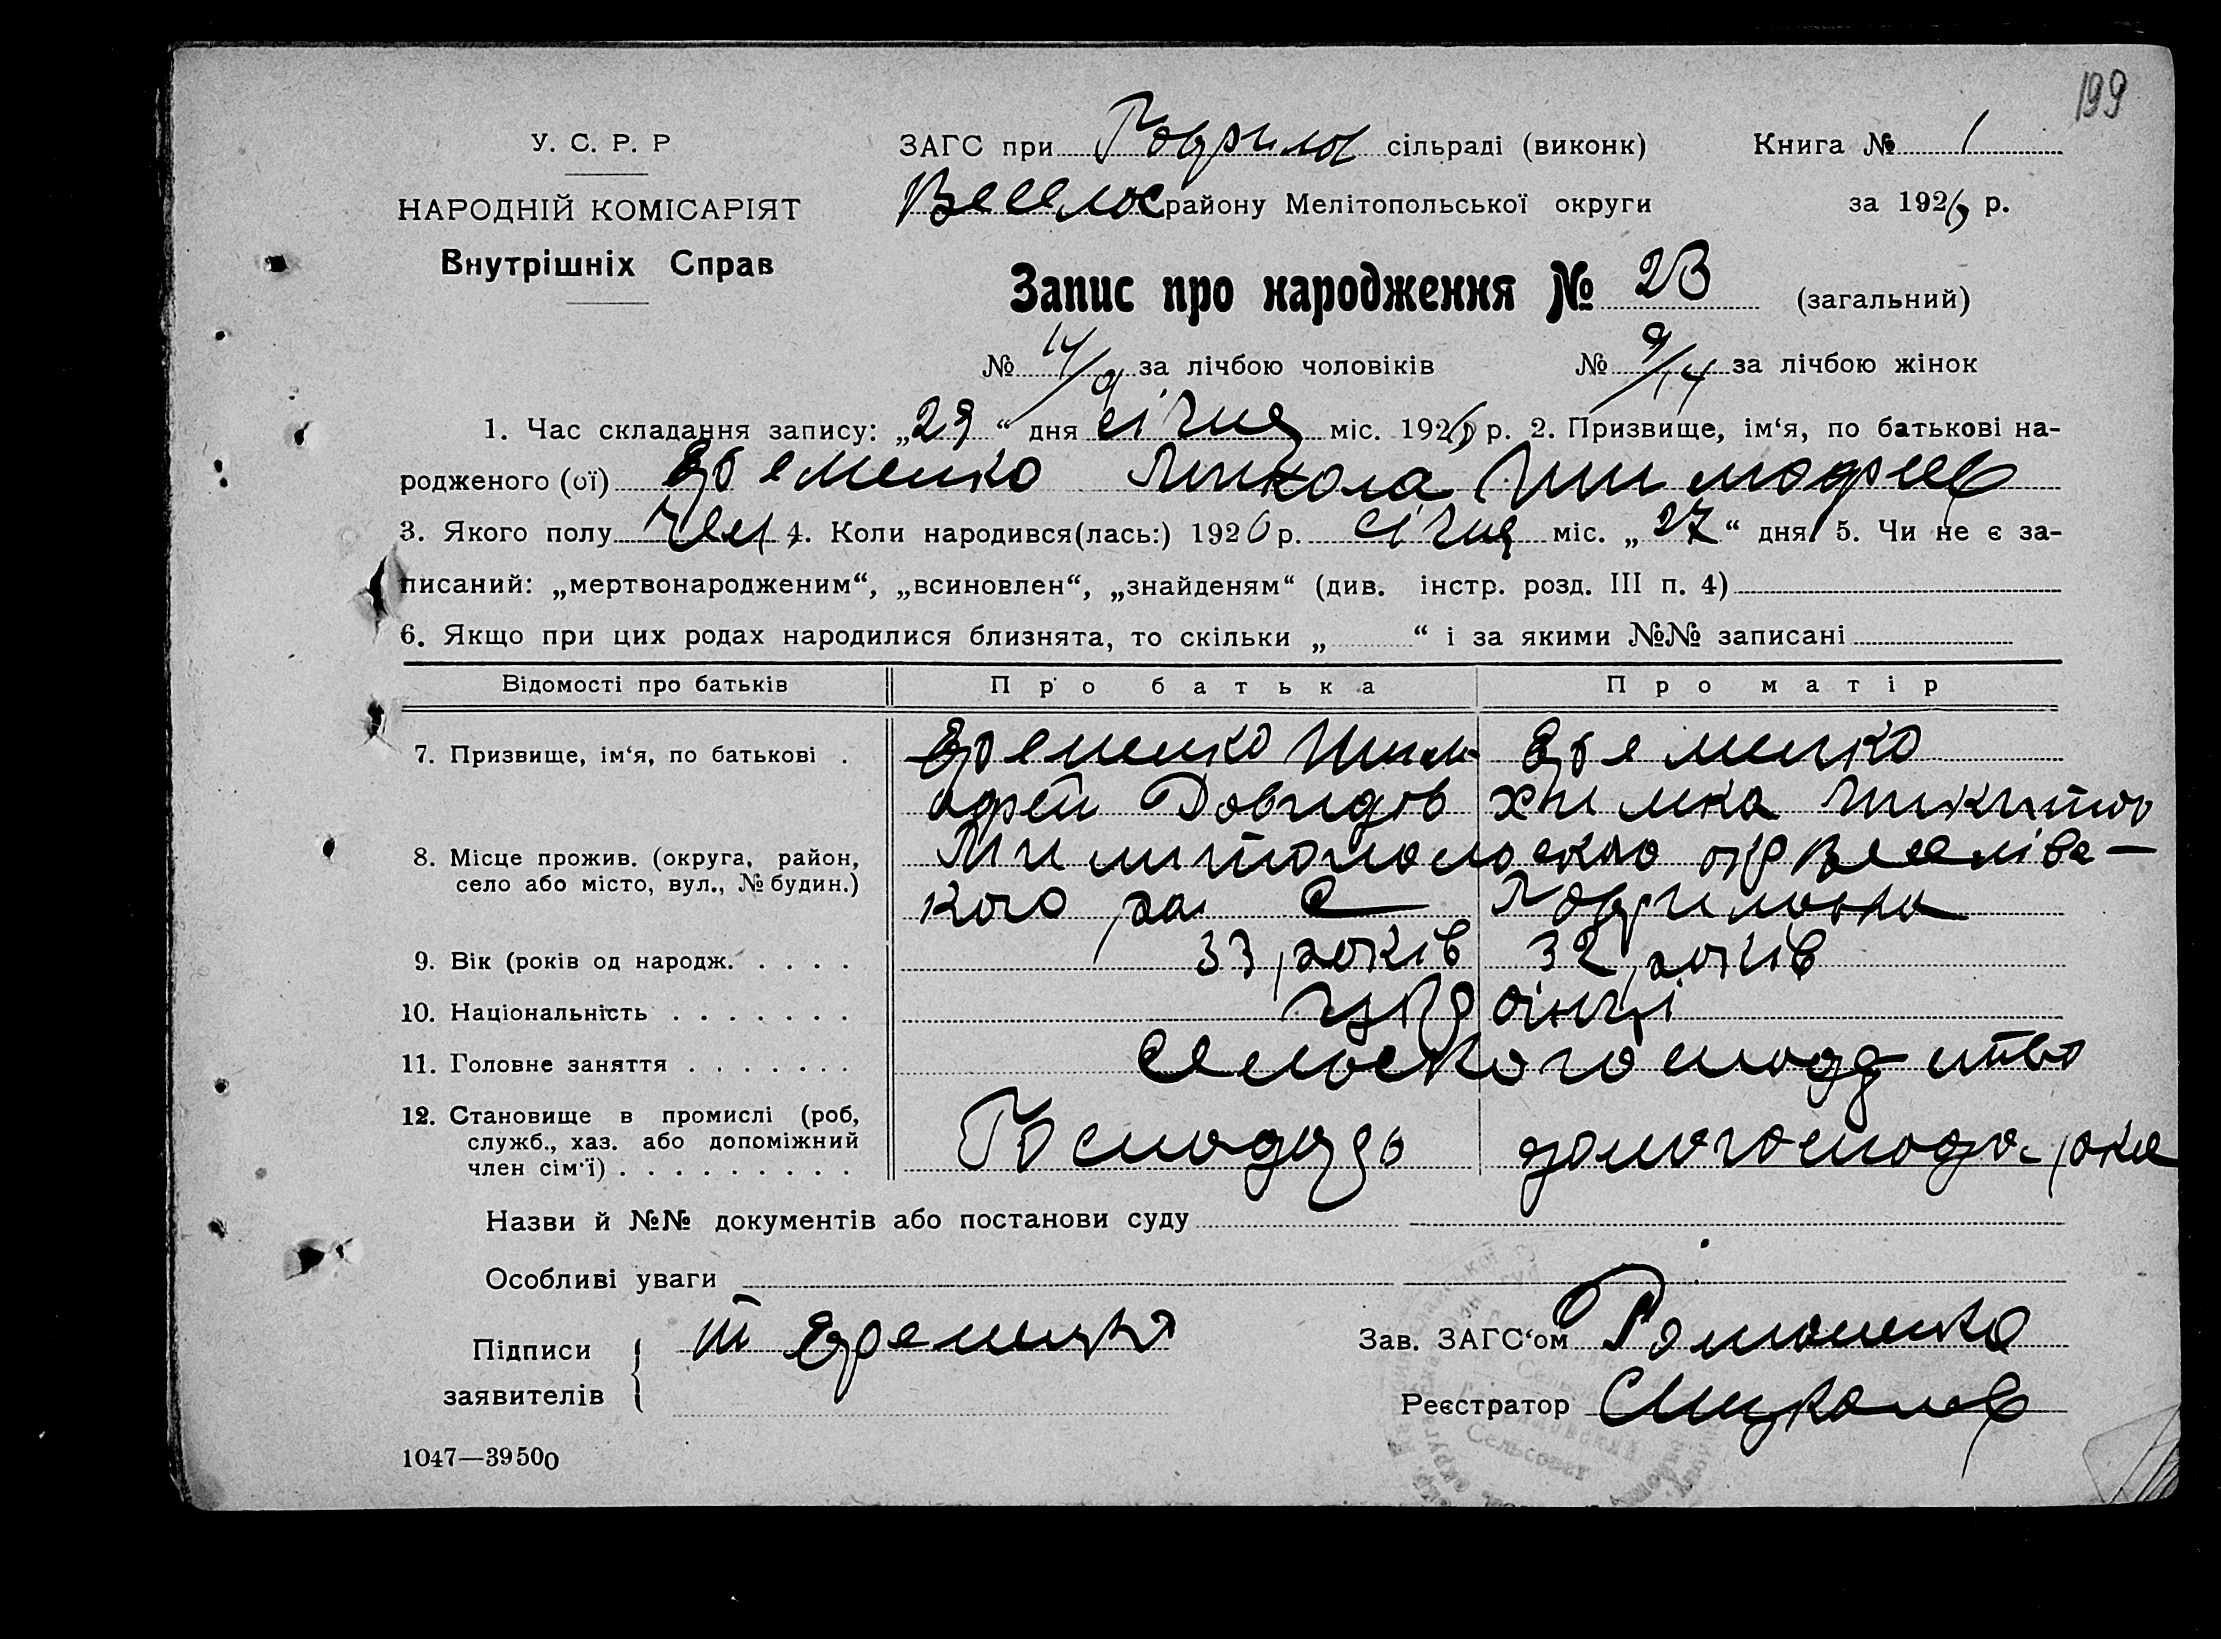 199
У. С. Р. Р
ЗАГС при Гаврилов сільраді (виконк)
Книга № 1
НАРОДНІЙ КОМІСАРІЯТ
Веселос району Мелітопольської округи
за 1926 р.
Внутрішніх Справ
Запис про народження № 23 (загальний)
№ 14/9 за лічбою чоловіків № 9/14 за лічбою жінок
1. Час складання запису: „29“ дня січня міс. 1926 р. 2. Призвище, ім‘я, по батькові на-
родженого (ої) Еременко Микола Тимофеев
3. Якого полу чол 4. Коли народився(лась:) 1926 р. січня міс. „27“ дня. 5. Чи не є за-
писаний: „мертвонародженим“, „всиновлен“, „знайденям“ (див. інстр. розд. III п. 4)
6. Якщо при цих родах народилися близнята, то скільки „ “ і за якими №№ записані
Відомості про батьків Про батька Про матір
7. Призвище, ім‘я, по батькові . Еременко Тим Еременко
офей Давидов Химка Микитов
8. Місце прожив. (округа, район, Милитопольского окр Веселівс-
село або місто, вул., № будин.) кого ра с Гавриловка
9. Вік (років од народж. . . . . 33 років 32 років
10. Національність . . . . . . . українці
11. Головне заняття . . . . . . .
12. Становище в промислі (роб, Господарь
служб., хаз. або допоміжний
член сім‘ї) . . . . . . . . .
Назви й №№ документів або постанови суду
Особливі уваги
Підписи заявителів { Т Еременко
Зав. ЗАГС‘ом Романенко
Реєстратор
Сельсовет
1047—39500